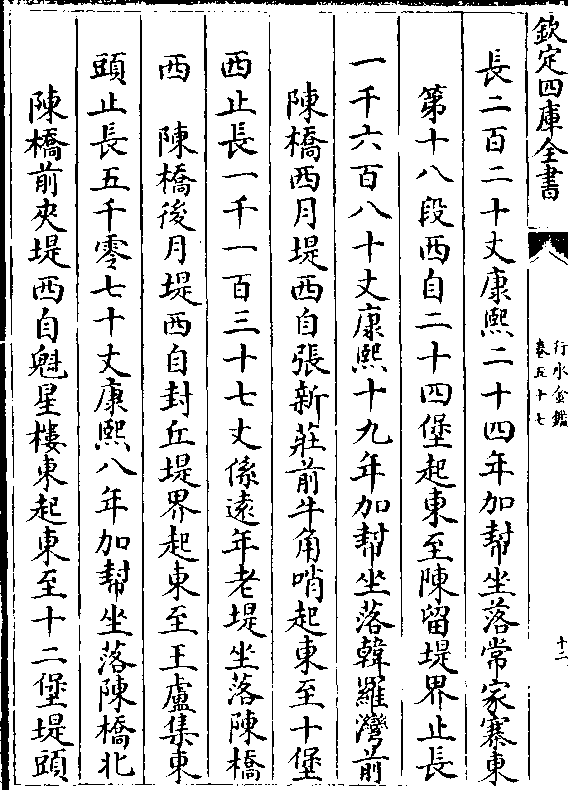 欽定四庫全書
行水金鑑
卷五十七
十二
長二百二十丈康熙二十四年加幫坐落常家寨東
第十八段西自二十四堡起東至陳留堤界止長
一千六百八十丈康熙十九年加幫坐落韓羅灣前
陳橋西月堤西自張新莊前牛角哨起東至十堡
西止長一千一百三十七丈係遠年老堤坐落陳橋
西　陳橋後月堤西自封丘堤界起東至王盧集東
頭止長五千零七十丈康熙八年加幫坐落陳橋北
陳橋前夾堤西自魁星樓東起東至十二堡堤頭